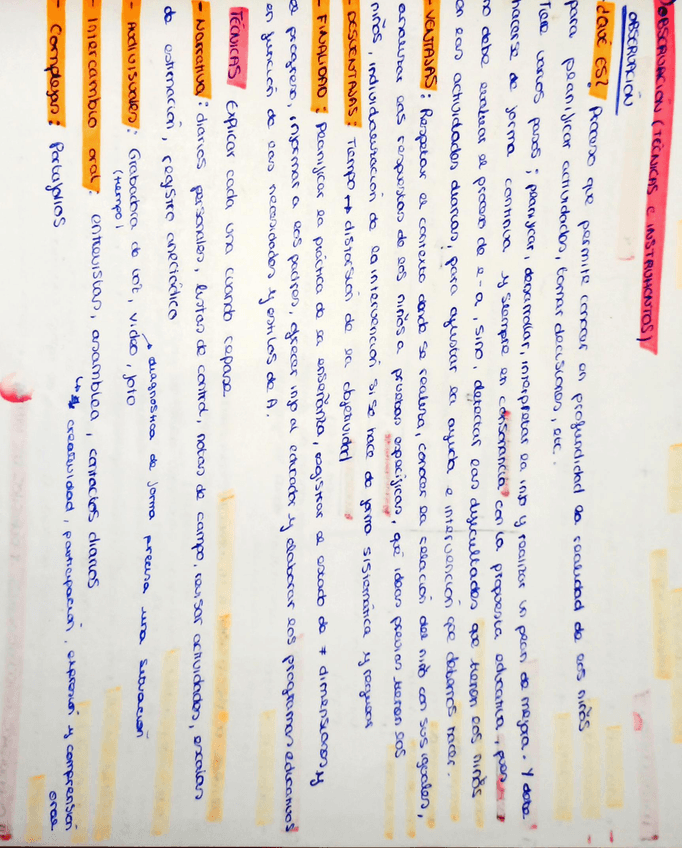 OBSERVACIÓN (TÉCNICAS E INSTRUMENTOS)
OBSERVACIÓN
¿QUÉ ES? Proceso que permite conocer en profundidad la realidad de los niños
para planificar actividades, tomar decisiones, etc.
Tiene varios pasos: planificar, desarrollar, interpretar la info y realizar un plan de mejora. Y debe
hacerse de forma continua y siempre en consonancia con la propuesta educativa, pues
no debe evaluar el proceso de e-a, sino, detectar las dificultades que tienen los niños
en las actividades diarias, para ajustar la ayuda e intervención que debemos hacer.
- VENTAJAS: Respetar el contexto donde se realiza, conocer la relación del niño con sus iguales,
analizar las respuestas de los niños a pruebas específicas, qué ideas previas tienen los
niños, individualización de la intervención si se hace de forma sistemática y regular
- DESVENTAJAS: Tiempo → distorsión de la objetividad
- FINALIDAD: Planificar la práctica de la enseñanza, registrar el estado de ≠ dimensiones y
el progreso, informar a los padres, ofrecer info al educador y elaborar los programas educativos
en función de las necesidades y estilos de A.
TÉCNICAS Explicar cada una cuando repase
- Narrativa: diarios personales, listas de control, notas de campo, revisar actividades, escalas
de estimación, registro anecdótico
- Audivisuales: Grabadora de voz, video, foto
(tiempo) → diagnostica de forma precisa una situación
- Intercambio oral: entrevistas, asamblea, contactos diarios
↳ creatividad, participación, expresión y comprensión
oral
- Complejas: Portafolios